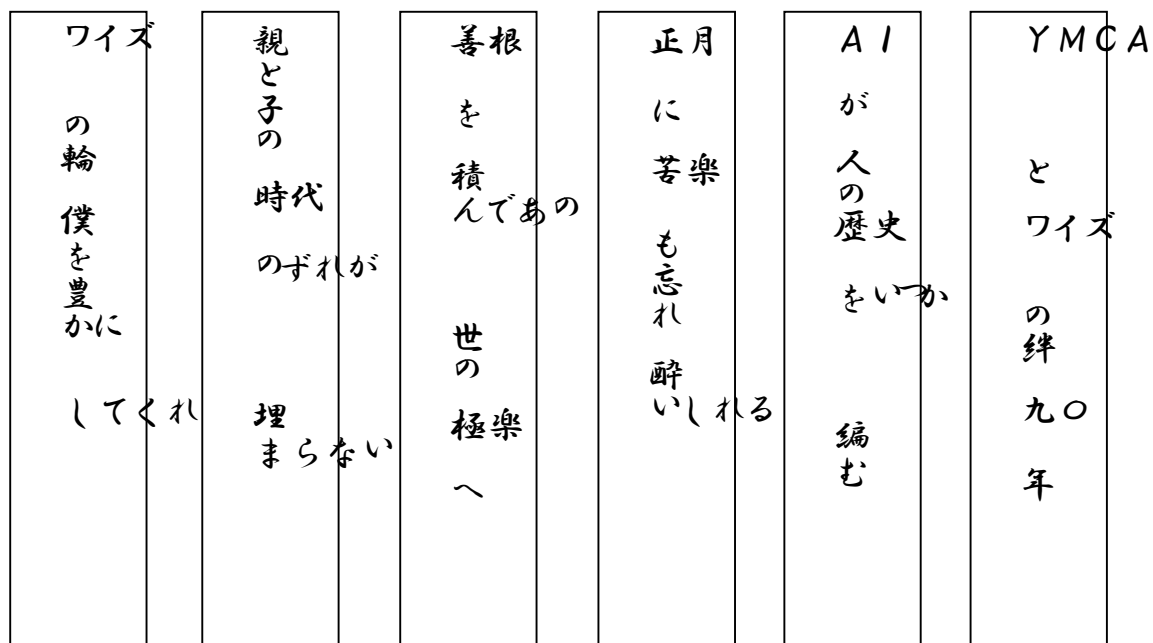 ＹＭＣＡとワイズの絆九〇年
ＡＩが人の歴史をいつか編む
正月に苦楽も忘れ酔いしれる
善根を積んであの世の極楽へ
親と子の時代のずれが埋まらない
ワイズの輪僕を豊かにしてくれ